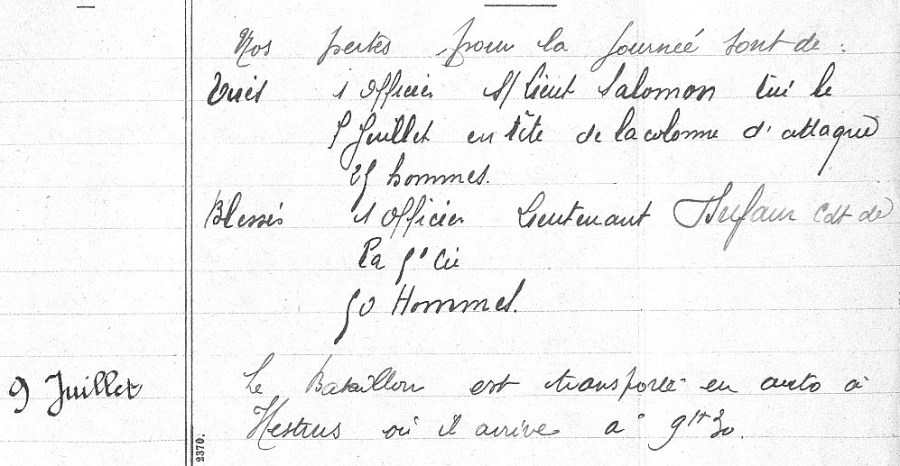 Nos pertes pour la journeé sont de :
Tués 1 Officier S/Lieut Salomon tué le
Juillet en tête de la colonne d'attaque
hommes.
Blessés 1 Officier Lieutenant Cdt de
la Cie
50 Hommes.
9 Juillet Le Bataillon est transporté en auto à
Hestrus où il arrive à 9H30.
2370.